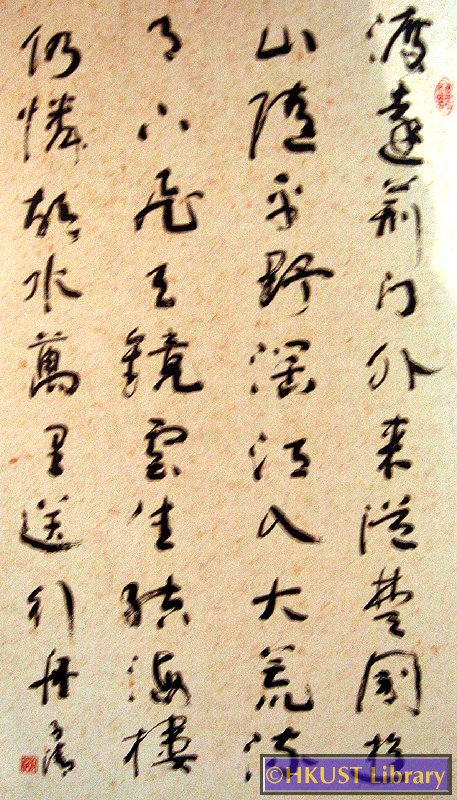 渡遠荊门外来從楚國遊
山隨平野濶江入大荒流
月下飛天鏡雲生結海樓
仍憐故水萬里送行舟
©HKUST Library